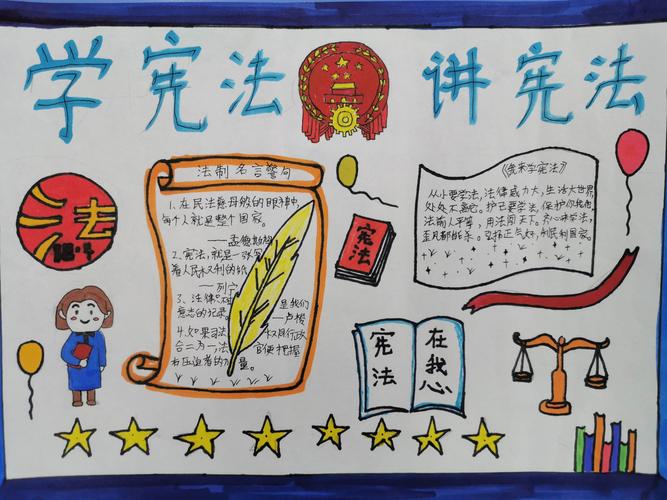 学宪法 讲宪法
法制名言警句
1、在民法慈母般的眼神中,
每个人就是整个国家。
——孟德斯鸠
2、宪法,就是一张写
着人民权利的纸
——列宁
3、法律 是我们
意志的记录。 ——卢梭
4、如果司法 权同行政
合二为一,法 官便把握
有压迫者的力量。
法
12·4
宪法
《我来学宪法》
从小要学法,法律威力大,生活大世界,
处处不离它。护己要学法,保护你我他,
法前人平等,用法闯天下。齐心来学法,
歪风都能杀。坚持正气好,利民利国家。
宪法
在我心